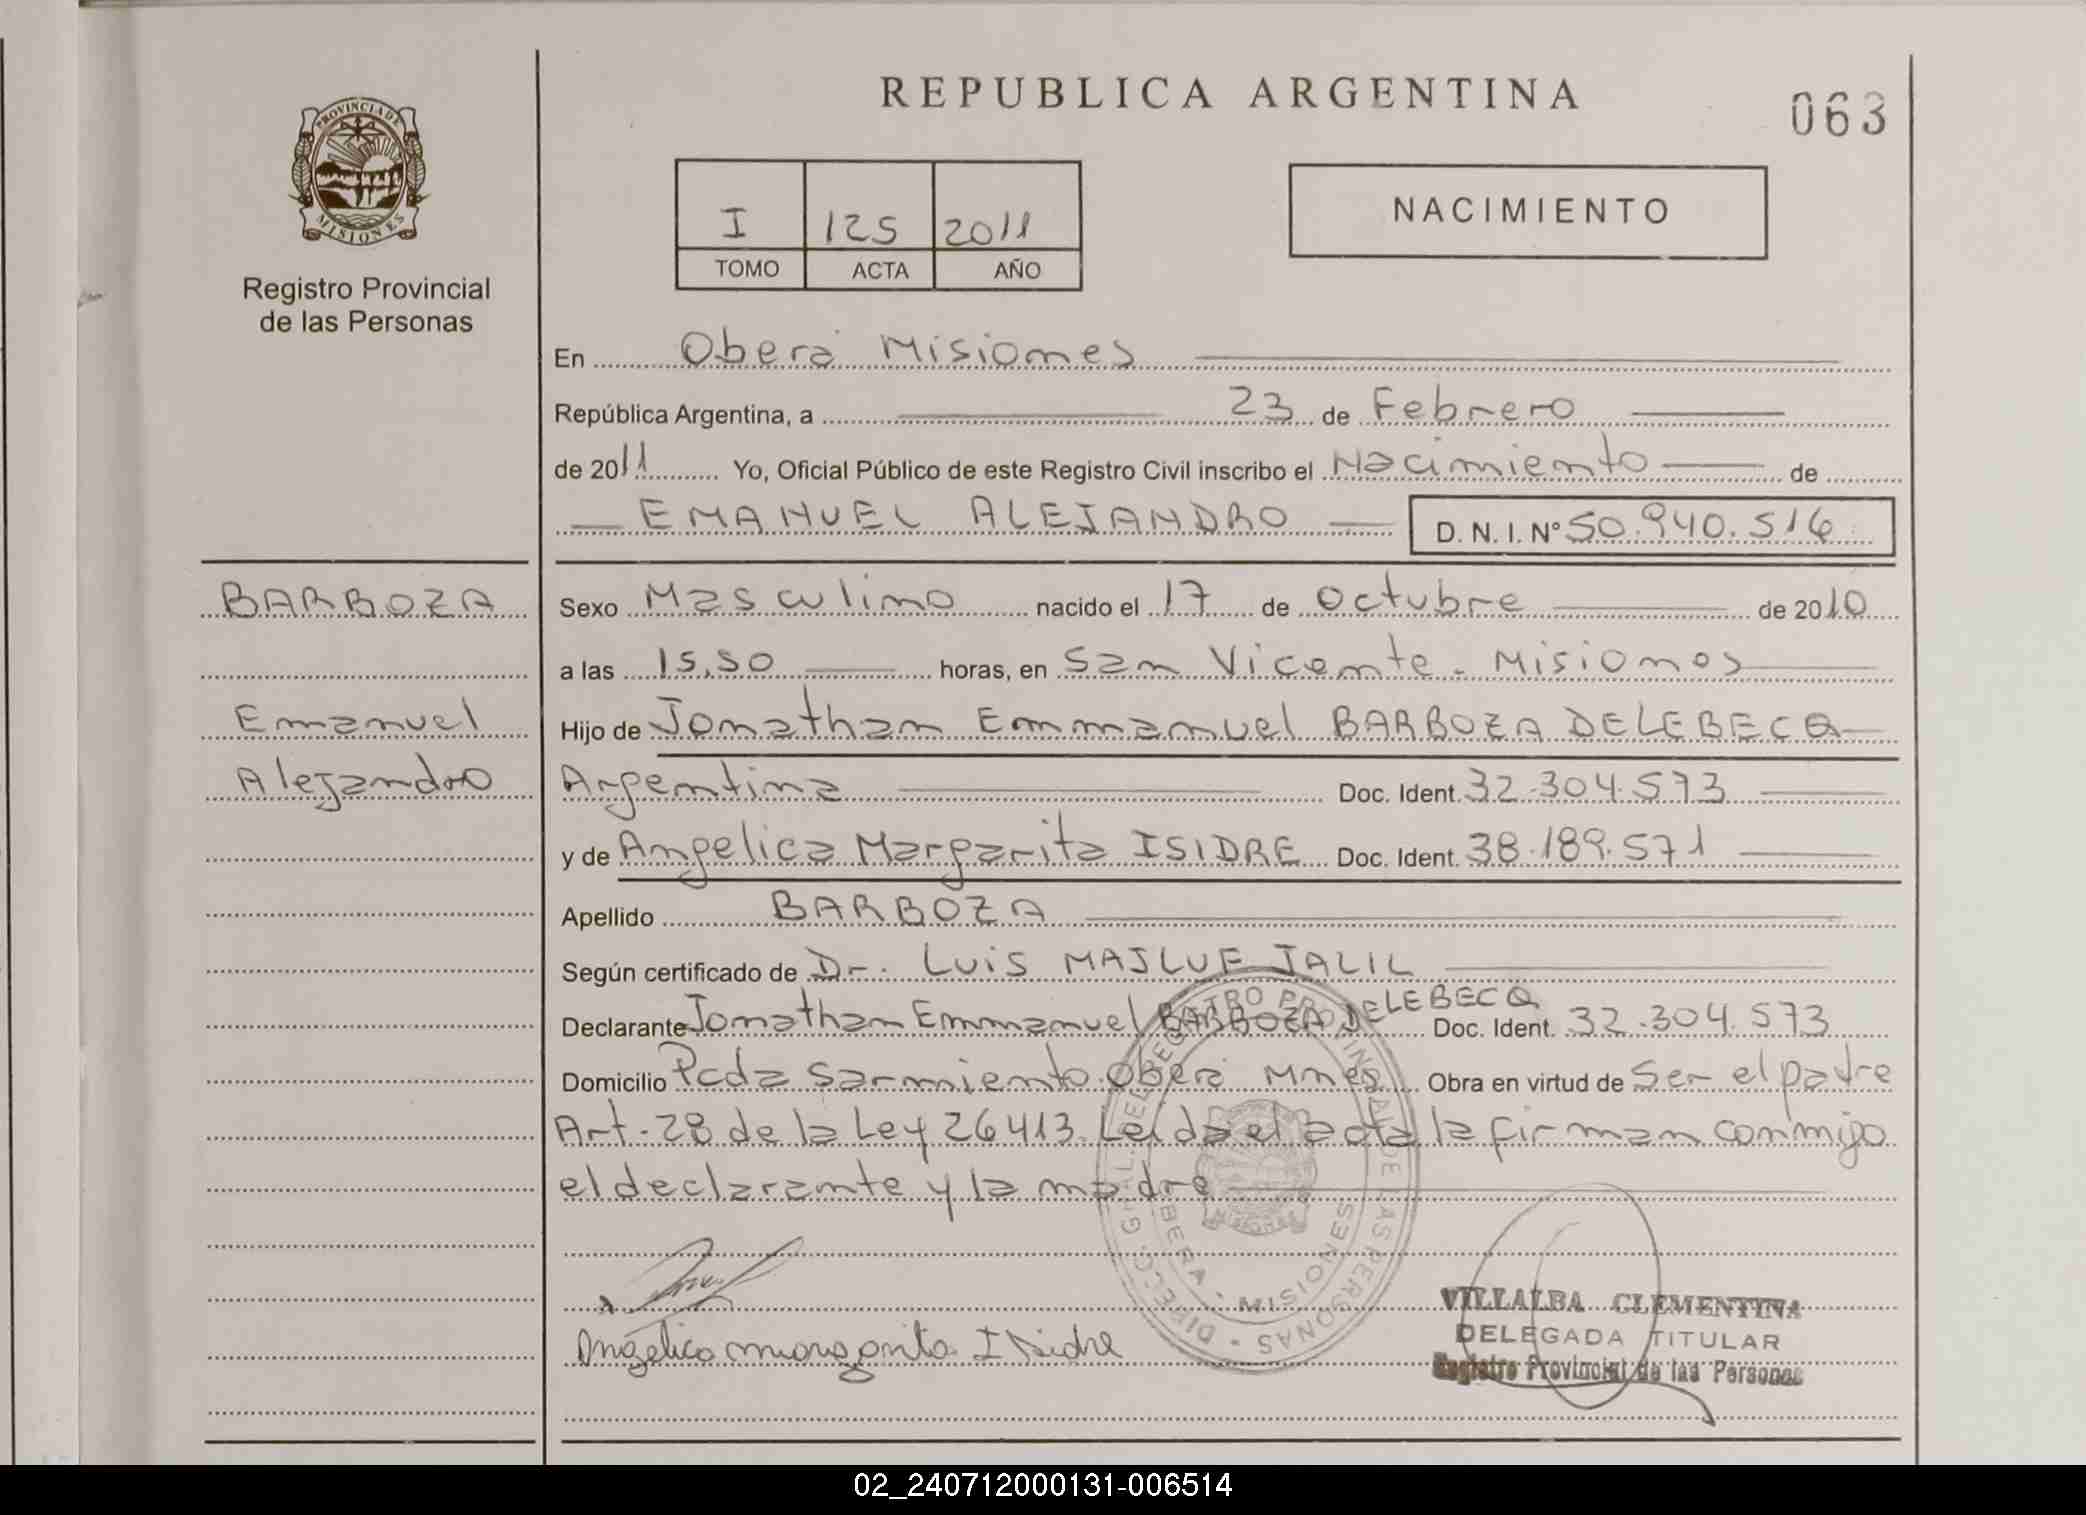 REPUBLICA ARGENTINA
063
PROVINCIA DE
MISIONES
Registro Provincial
de las Personas
I 125 2011
TOMO ACTA AÑO
NACIMIENTO
En Oberá Misiones
República Argentina, a 23 de Febrero
de 2011 Yo, Oficial Público de este Registro Civil inscribo el Nacimiento de
EMANUEL ALEJANDRO D. N. I. N° 50.940.516
BARBOZA
Emanuel
Alejandro
Sexo Masculino nacido el 17 de Octubre de 2010
a las 15,50 horas, en San Vicente - Misiones
Hijo de Jonathan Emmanuel BARBOZA DELEBECQ
Argentina Doc. Ident. 32.304.573
y de Angelica Margarita ISIDRE Doc. Ident. 38.189.571
Apellido BARBOZA
Según certificado de Dr. Luis MAJLUF JALIL
Declarante Jonathan Emmanuel BARBOZA DELEBECQ Doc. Ident. 32.304.573
Domicilio Pcda Sarmiento Oberá Mnes Obra en virtud de Ser el padre
Art. 28 de la Ley 26413. Leída el acta la firman conmigo
el declarante y la madre
Angélica margarita Isidre
VILLALBA CLEMENTINA
DELEGADA TITULAR
Registro Provincial de las Personas
02_240712000131-006514